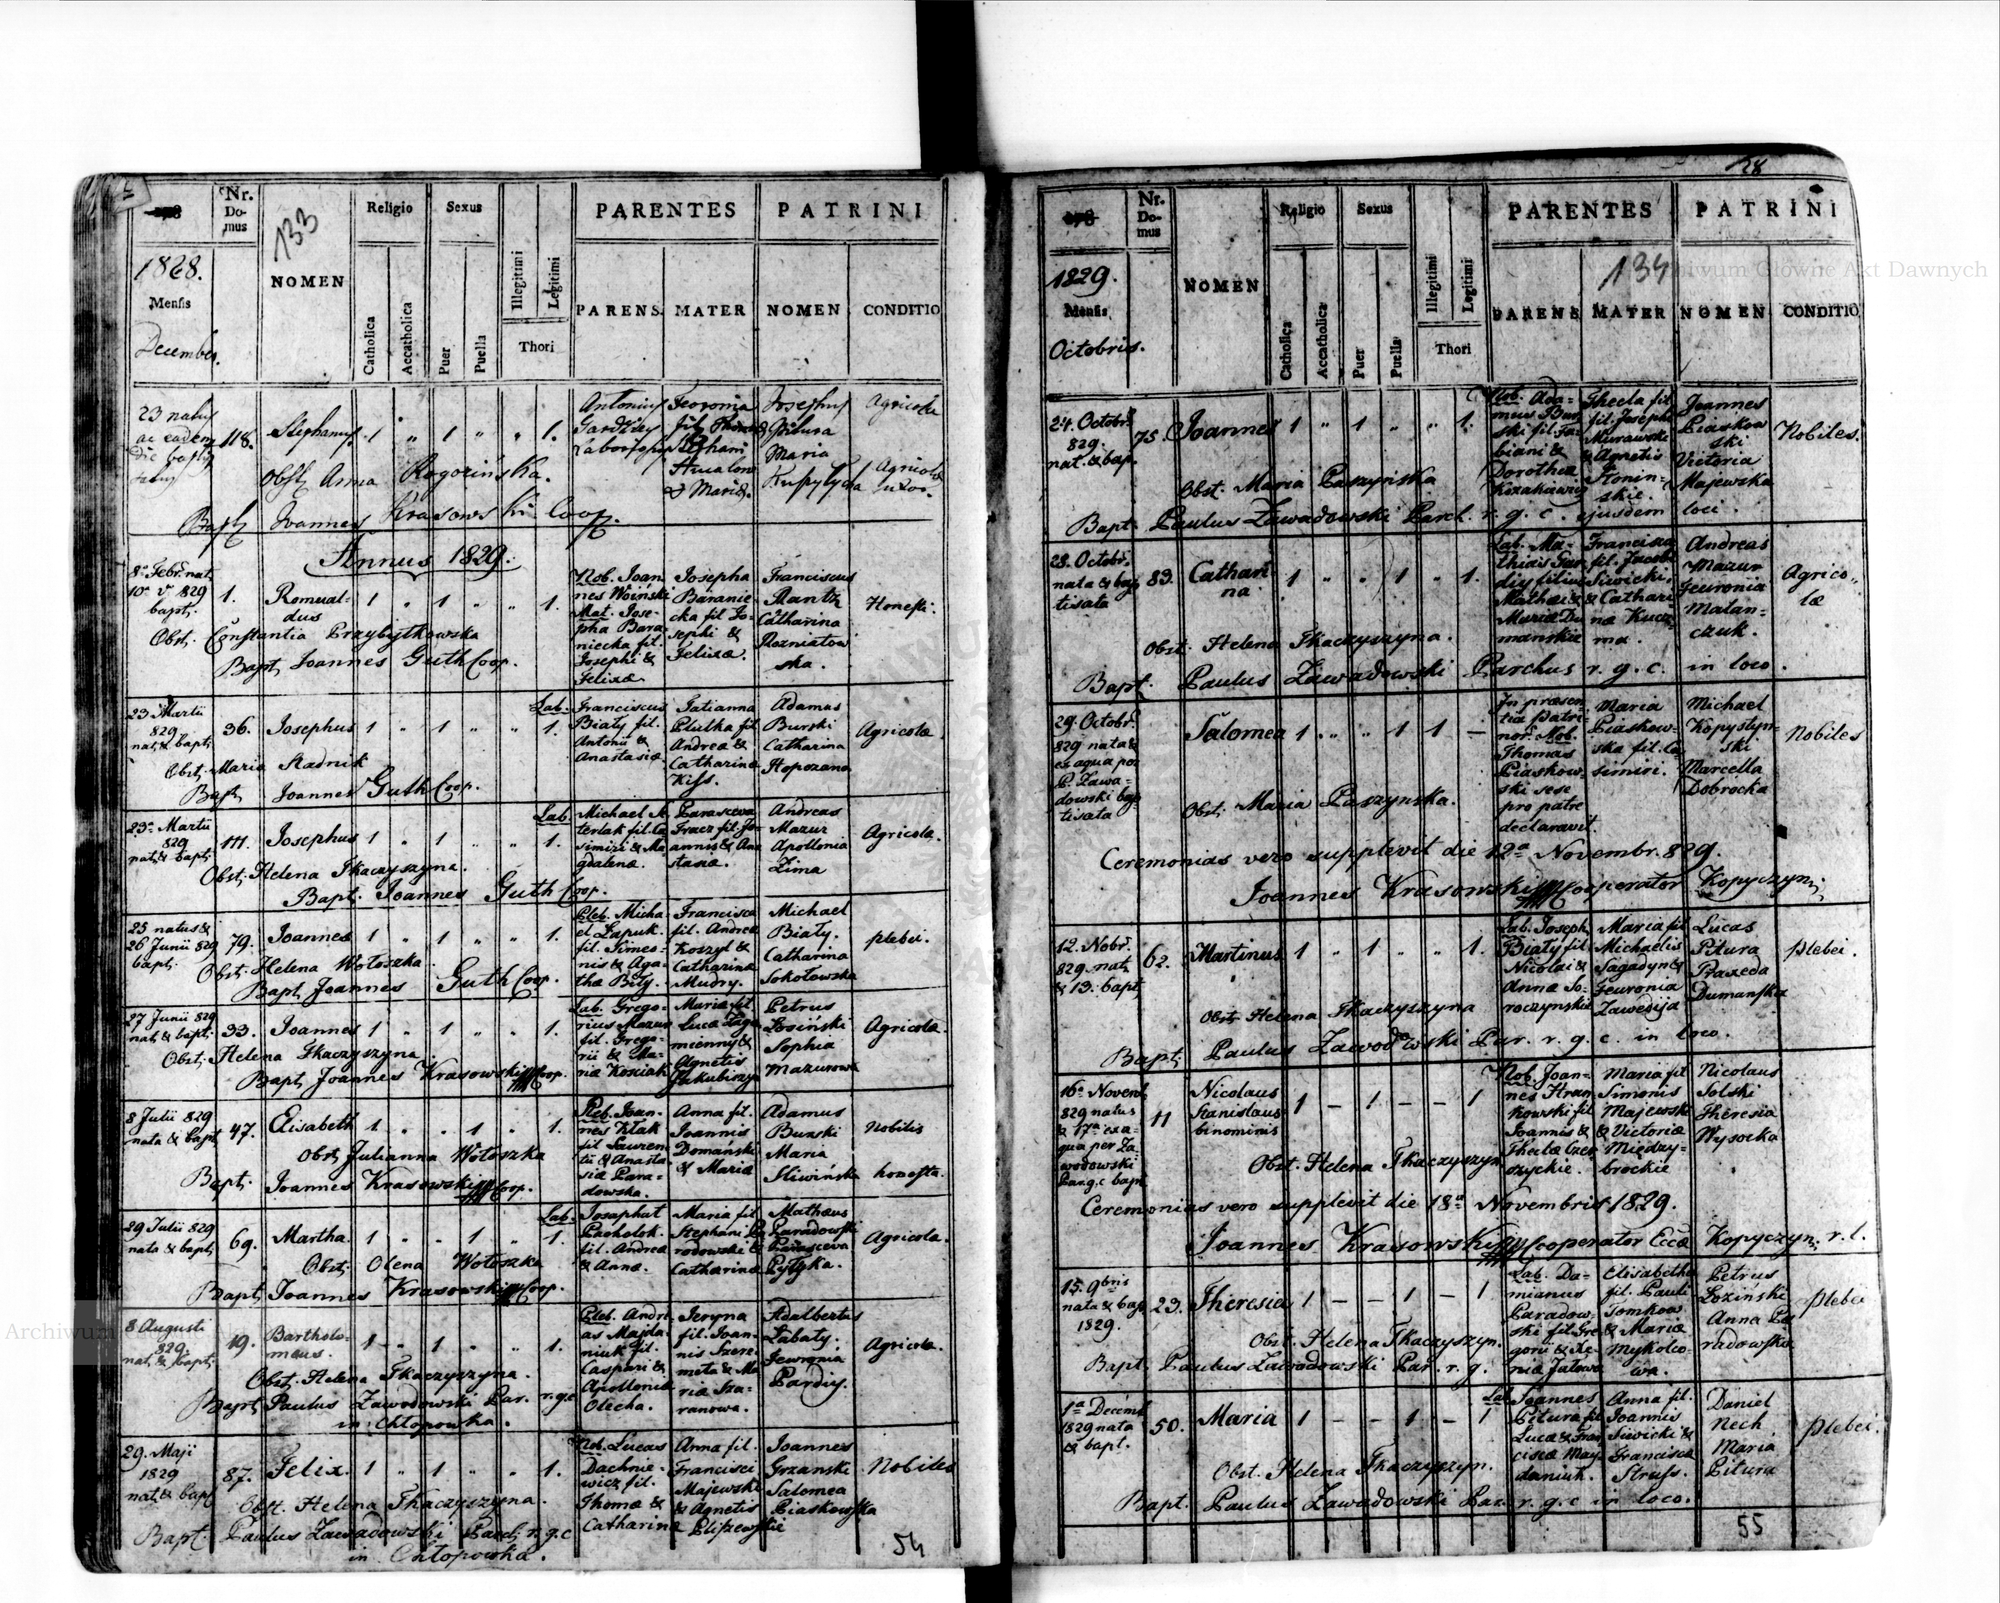 133
1828.
Mensis
December.
Nr. Domus
NOMEN
Religio
Catholica
Accatholica
Sexus
Puer
Puella
Illegitimi
Legitimi
Thori
PARENTES
PATRINI
PARENS
MATER
NOMEN
CONDITIO
23 natus
ac eadem
die
118.
Stephanus
1 " 1 " " 1.
Antonius
Laboriosus
Fevronia
Stephani
& Mariæ
Josephus
Pitura
Maria
Agricola
Obst. Anna Rogozińska.
Bapt. Joannes Krasowski Coop.
Annus 1829.
8a Febr. nat.
10a v 829
bapt.
1.
Romual-
dus
1 " 1 " " 1.
Nob. Joan-
nes Woinski
Mat. Jose-
pha Bara-
niecka fil.
Josephi &
Felixæ
Josepha
Baranie-
cka fil. Jo-
sephi &
Felixæ.
Franciscus
Mantz
Catharina
Rozniatow-
ska.
Honesti.
Obst. Constantia Przybytkowska
Bapt. Joannes Guth Coop.
23 Martii
829
nat. & bapt.
36.
Josephus
1 " 1 " " 1.
Lab. Franciscus
Biały fil.
Antonii &
Anastasiæ
Tatianna
Plutka fil.
Andreæ &
Catharinæ
Kiss.
Adamus
Burski
Catharina
Hopozana
Agricolæ
Obst. Maria Stadnik
Bapt. Joannes Guth Coop.
23a Martii
829
nat. & bapt.
111.
Josephus
1 " 1 " " 1.
Lab. Michael
terlak fil. Ca-
simiri & Ma-
gdalenæ.
Parasceva
Fracz fil. Jo-
annis & Ana-
stasiæ.
Andreas
Mazur
Apollonia
Zima
Agricolæ.
Obst. Helena Tkaczyszyna.
Bapt. Joannes Guth Coop.
25 natus &
26 Junii 829
bapt.
79.
Joannes
1 " 1 " " 1.
Pleb. Micha-
el Łapuk.
fil. Simeo-
nis & Aga-
thæ Bity.
Francisca
fil. Andreæ
Koszyl &
Catharinæ
Mudry.
Michael
Biały.
Catharina
Sokołowska
plebei.
Obst. Helena Wołoszka
Bapt. Joannes Guth Coop.
27 Junii 829
nat. & bapt.
33.
Joannes
1 " 1 " " 1.
Lab. Grego-
rius Mazur
fil. Grego-
rii & Ma-
riæ Kosiak
Maria fil.
Lucæ
& Agnetis
Jakubiszyn
Petrus
Łosiński
Sophia
Mazurowa
Agricolæ.
Obst. Helena Tkaczyszyna
Bapt. Joannes Krasowski Coop.
8 Julii 829
nata & bapt.
47.
Elisabeth
1 " " 1 " 1.
Pleb. Joan-
nes Ktak
fil. Lauren-
tii & Anasta-
siæ Para-
dowska.
Anna fil.
Joannis
Domański
& Mariæ
Adamus
Burski
Maria
Sliwińska
Nobilis
honesta.
Obst. Julianna Wołoszka
Bapt. Joannes Krasowski Coop.
29 Julii 829
nata & bapt.
69.
Martha.
1 " " 1 " 1.
Lab. Josaphat
Pacholok.
fil. Andreæ
& Annæ.
Maria fil.
Stephani Pa-
rodowski &
Catharinæ
Mathæus
Paradowski
Parasceva
Agricolæ.
Obst. Olena Wołoszka
Bapt. Joannes Krasowski Coop.
8 Augusti
829.
nat. & bapt.
19.
Bartholo-
mæus.
1 - 1 " " 1.
Pleb. Andre-
as Majda-
niuk fil.
Caspari &
Apolloniæ
Olecha.
Jeryna
fil. Joan-
nis Szere-
meta & Ma-
riæ Sza-
ranowa.
Adalbertus
Labaty.
Jewronia
Pardiy.
Agricolæ.
Obst. Helena Tkaczyszyna.
Bapt. Paulus Zawadowski Par. r. g. c
in Chłopowka.
29. Maji
1829
nat. & bapt.
87.
Felix.
1 " 1 " " 1.
Nob. Lucas
Dachnie-
wicz fil.
Thomæ &
Catharinæ
Anna fil.
Francisci
Majewski
& Agnetis
Plisze
Joannes
Grzanski
Salomea
Piaskowska
Nobiles
Obst. Helena Tkaczyszyna.
Bapt. Paulus Zawadowski Parch. r. g. c
in Chłopowka.
54
28
134
1829.
Mensis
Octobris.
Nr. Domus
NOMEN
Religio
Catholica
Accatholica
Sexus
Puer
Puella
Illegitimi
Legitimi
Thori
PARENTES
PATRINI
PARENS
MATER
NOMEN
CONDITIO
24. Octobr.
829.
nat. & bap.
75.
Joannes
1 " 1 " " 1.
Nob. Ada-
mus Bur-
ski fil. Fa-
biani &
Dorotheæ
Kozakiewicz
Thecla fil.
fil. Josephi
Murawski
& Agnetis
Słonin-
skie.
Joannes
Piaskow
ski
Victoria
Majewska
Nobiles.
Obst. Maria Paszyńska
Bapt. Paulus Zawadowski Parch. r. g. c. ejusdem loci.
28. Octobr.
nata & bap
tisata
83.
Cathari
na
1 " " 1 " 1.
Lab. Ma-
thias Par
diy filius
Mathæi &
Mariæ Du
manskie
Francisca
fil. Jacobi
Siwicki,
& Cathari
næ Kucz-
ma.
Andreas
Mazur
Jewronia
Malan-
czuk.
Agrico-
læ
Obst. Helena Tkaczyszyna.
Bapt. Paulus Zawadowski Parchus r. g. c. in loco.
29. Octobr.
829 nata &
ex aqua per
P. Zawa-
dowski bap
tisata
Salomea
1 " " 1 1 —
In præsen-
tia patri-
nor. Nob.
Thomas
Piaskow-
ski sese
pro patre
declaravit.
Maria
Piaskow-
ska fil. Ca
simiri.
Michael
Kopystyn-
ski
Marcella
Dobrocka
Nobiles
Obst. Maria Paszynska.
Ceremonias vero supplevit die 12a Novembr. 829.
Joannes Krasowski Cooperator Kopyczyn.
12. Nobr.
829. nat
& 13. bapt.
62.
Martinus
1 " 1 " " 1.
Lab. Joseph
Biały fil.
Nicolai &
Annæ Jo-
roczynskie
Maria fil.
Michaelis
Sagadyn &
Jewronia
Zawesija
Lucas
Pitura
Praxeda
Dumanska
plebei.
Obst. Helena Tkaczyszyna
Bapt. Paulus Zawodowski Par. r. g. c. in loco.
16a Novem
829 natus
& 17a ex a-
qua per Za-
wodowski
Par. g. c bapt.
11
Nicolaus
Stanislaus
binominis
1 — 1 — — 1
Nob. Joan-
nes Stran-
kowski fil.
Joannis &
Theclæ Czer-
szyckie.
Maria fil.
Simonis
Majewski
& Victoriæ
Miedzy-
brockie
Nicolaus
Solski
Theresia
Wysocka
Obst. Helena Tkaczyszyn.
Ceremonias vero supplevit die 18a Novembris 1829.
Joannes Krasowski Cooperator Eccæ Kopyczyn. r. l.
15. 9bris
nata & bap
1829.
23.
Theresia
1 — — 1 — 1
Lab. Da-
mianus
Paradow-
ski fil. Gre
gorii & Xe-
niæ Jatowa
Elisabetha
fil. Pauli
Tomkow
& Mariæ
Mykolco-
wa.
Petrus
Łoziński
Anna Pa
radowska
plebei
Obst. Helena Tkaczyszyn.
Bapt. Paulus Zawadowski Par. r. g.
1a Decemb
1829 nata
& bapt.
50.
Maria
1 — — 1 — 1
Lab. Joannes
Pitura fil.
Lucæ & Fran
ciscæ May-
daniuk.
Anna fil.
Joannis
Siwicki &
Francisca
Struss.
Daniel
Nech
Maria
Pitura
plebei.
Obst. Helena Tkaczyszyn.
Bapt. Paulus Zawadowski Par. r. g. c in loco.
55
Archiwum Główne Akt Dawnych